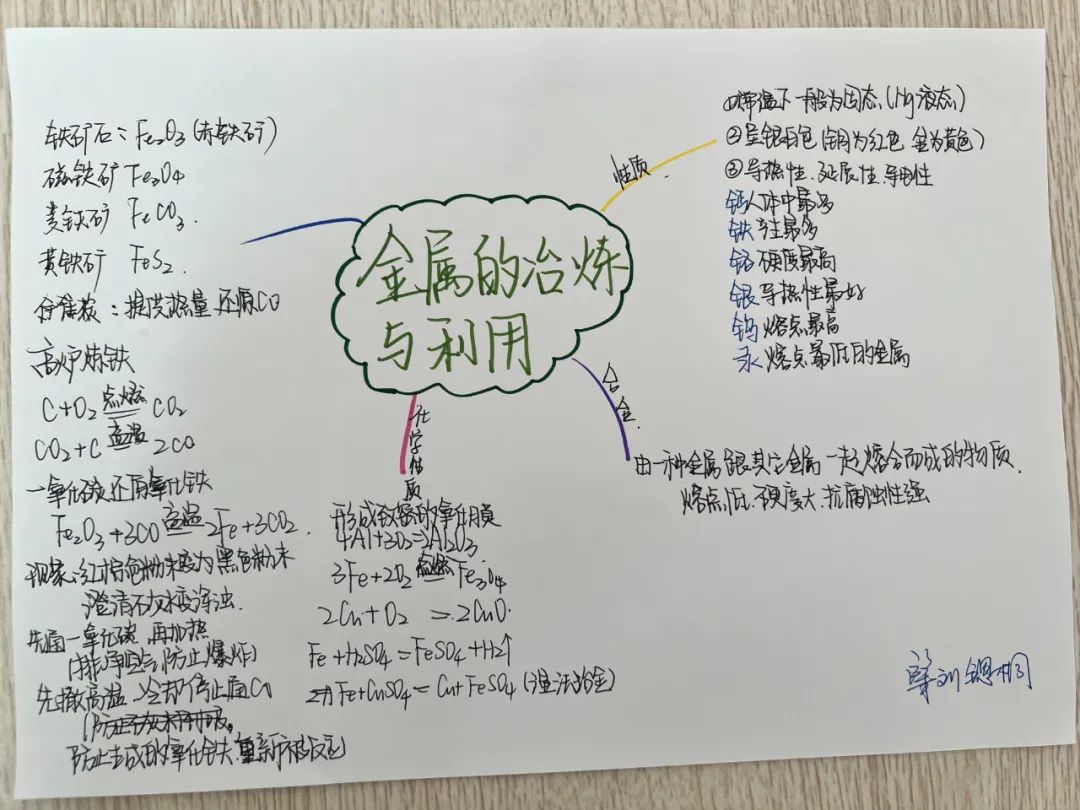 金属的冶炼
与利用
铁矿石：Fe₂O₃（赤铁矿）
磁铁矿 Fe₃O₄
黄铁矿 FeS₂.
提供热量 还原CO
高炉炼铁
C+O₂ 点燃 CO₂
CO₂+C 高温 2CO
一氧化碳还原氧化铁
Fe₂O₃+3CO 高温 2Fe+3CO₂.
现象：红棕色粉末变为黑色粉末
澄清石灰水变浑浊.
先通一氧化碳，再加热
（排净空气，防止爆炸）
先撤高温，冷却停止通CO
重新被
性质
①常温下一般为固态，（Hg液态）
②呈银白色（铜为红色 金为黄色）
③导热性.延展性.导电性
钙人体中最多
铁 最多
铬硬度最高
银导热性最好
钨 熔点最高
熔点最低的金属
合金.
由一种金属跟其它金属一起熔合而成的物质.
熔点低.硬度大.抗腐蚀性强
化学性质
形成致密的氧化膜
4Al+3O₂=2Al₂O₃
3Fe+2O₂ 点燃 Fe₃O₄
2Cu+O₂ =2CuO
Fe+H₂SO₄=FeSO₄+H₂↑
Fe+CuSO₄=Cu+FeSO₄（湿法冶金）